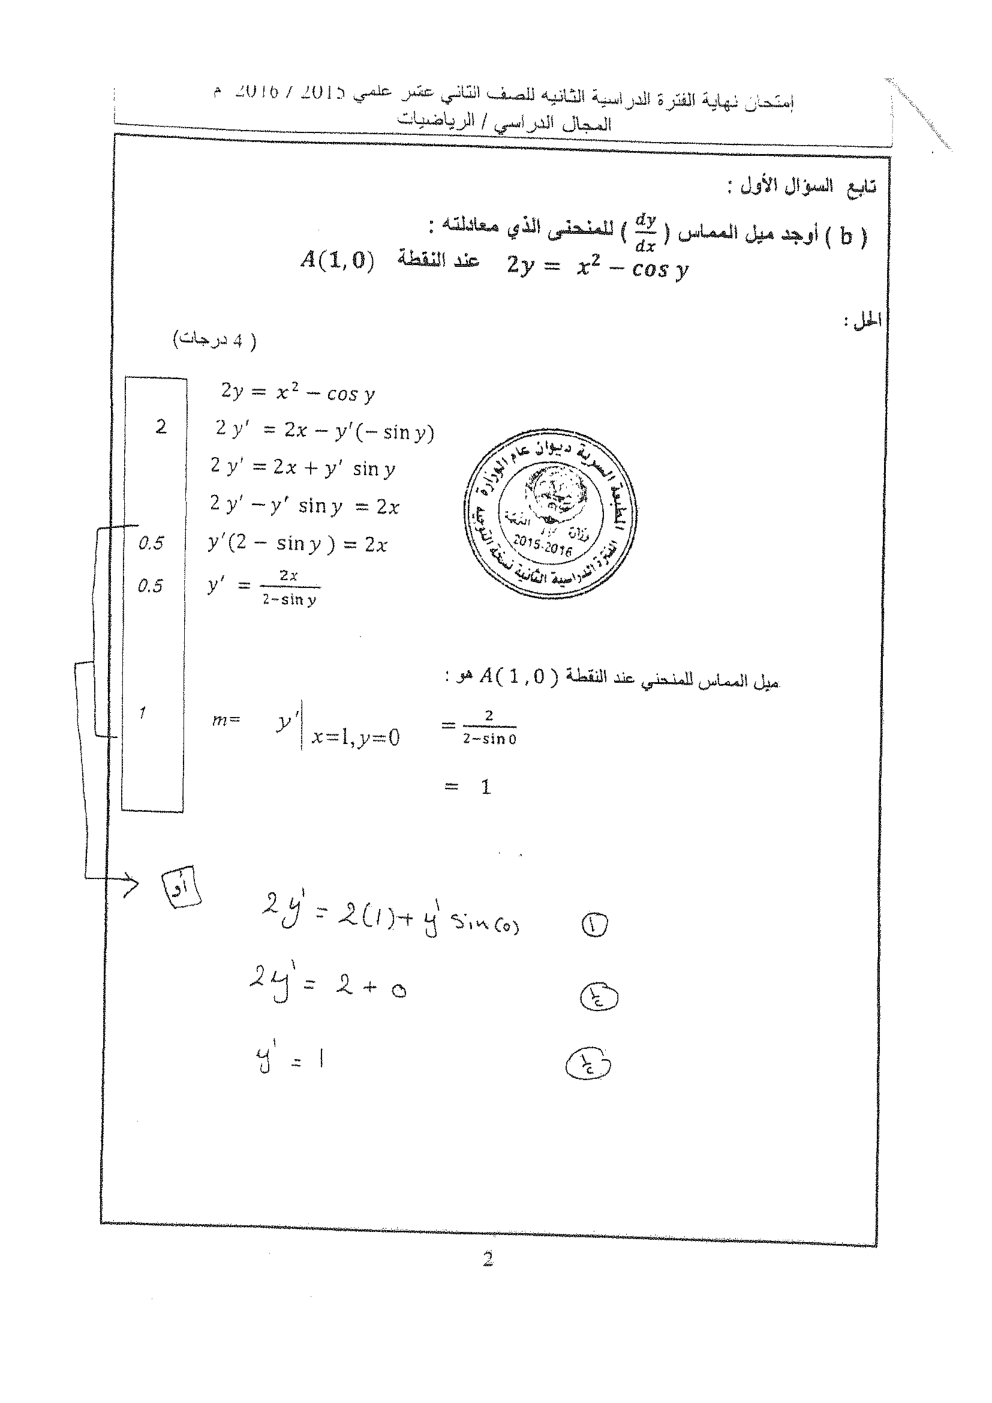 إمتحان نهاية الفترة الدراسية الثانيه للصف الثاني عشر علمي 2015 / 2016 م
المجال الدراسي / الرياضيات
تابع السؤال الأول :
( b ) أوجد ميل المماس ( dy/dx ) للمنحنى الذي معادلته :
2y = x² − cos y عند النقطة A(1, 0)
الحل :
( 4 درجات)
2y = x² − cos y
2 2 y′ = 2x − y′(− sin y)
2 y′ = 2x + y′ sin y
2 y′ − y′ sin y = 2x
0.5 y′(2 − sin y ) = 2x
0.5 y′ = 2x/2−sin y
المطبعة السرية ديوان عام الوزارة
2015-2016
الفترة الدراسية الثانية نسخة التوجيه
ميل المماس للمنحني عند النقطة A( 1 , 0 ) هو :
1 m= y′| x=1, y=0 = 2/2−sin 0
= 1
أو
2y′ = 2(1) + y′ sin(0) ①
2y′ = 2 + 0 ½
y′ = 1 ½
2